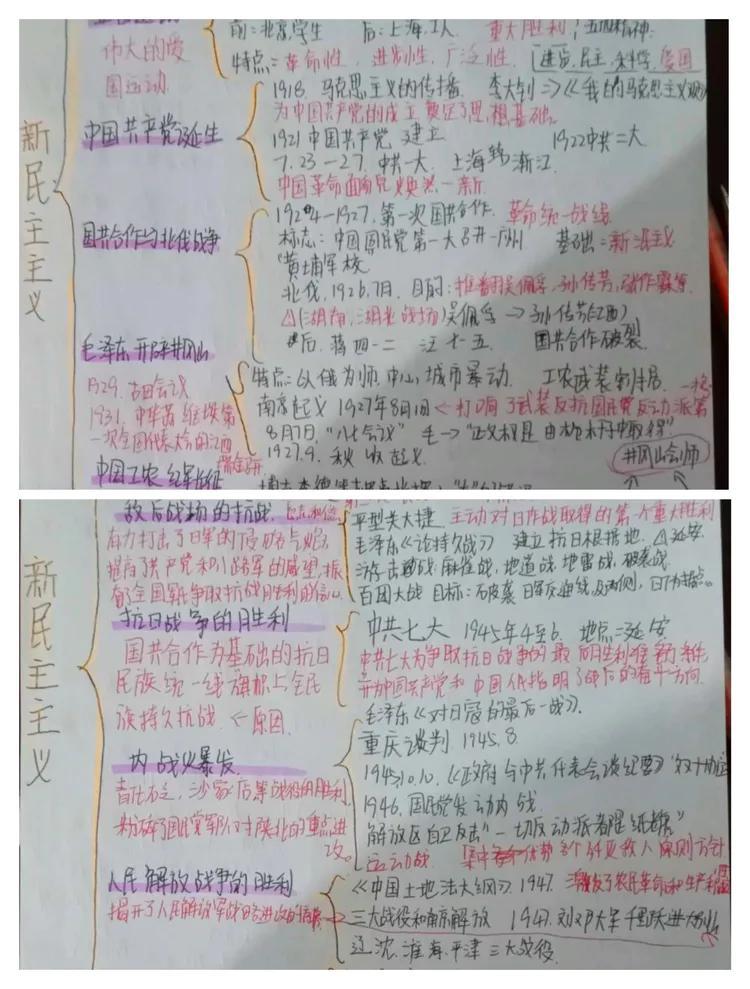 前:北京,学生 后:上海,工人 重大胜利!五四精神
伟大的爱
国运动
特点:革命性,进步性,广泛性. 进步,民主,科学,爱国
新民主主义
中国共产党诞生
1918, 马克思主义的传播. 李大钊 => 《我的马克思主义观》
为中国共产党的成立奠定了思想基础。
1921 中国共产党 建立 1922中共二大
7.23-27. 中共一大. 上海 浙江
中国革命面貌焕然一新
国共合作与北伐战争
1924-1927. 第一次国共合作. 革命统一战线
标志:中国国民党第一大召开-广州 基础=新三民主义
黄埔军校
北伐, 1926,7月. 目的:推翻吴佩孚,孙传芳,张作霖等
△(湖南,湖北战场)吴佩孚 → 孙传芳(江西)
后. 蒋四一二 汪七一五. 国共合作破裂
毛泽东开辟井冈山
1929. 古田会议
1931, 中华苏维埃第
一次全国代表大会的江西
特点:以俄为师.中心城市暴动. 工农武装割据.
南昌起义 1927年8月1日 ← 打响了武装反抗国民党反动派第
8月7日,"八七会议" 毛→"政权是由枪杆子中取得"
1927.9. 秋收起义. 井冈山会师
中国工农红军长征
敌后战场的抗战.
有力打击了日军的
提高了共产党和八路军的威望,振
奋了全国军争取抗战胜利的信心
平型关大捷. 主动对日作战取得的第一个重大胜利
毛泽东《论持久战》 建立抗日根据地. △延安
游击战:麻雀战,地道战,地雷战,破袭战.
百团大战 目标:破袭
新民主主义
抗日战争的胜利
国共合作为基础的抗日
民族统一线旗帜上全民
族持久抗战. ← 原因.
中共七大 1945年4至6. 地点=延安
中共七大为争取抗日战争的最后胜利准备了条件
并为中国共产党和中国人指明了战后的奋斗方向.
毛泽东《对日寇的最后一战》.
内战火暴发.
青化砭, 沙家店等战役的胜利,
粉碎了国民党军队对陕北的重点进
攻。
重庆谈判. 1945.8
1945,10.10. 《政府与中共代表会谈纪要》"双十协定
1946. 国民党发动内战.
解放区自卫反击 "一切反动派都是纸老虎"
运动战.
人民解放战争的胜利
揭开了人民解放军战略进攻的序幕
《中国土地法大纲》. 1947. 激发了农民革命和生产积极
三大战役和南京解放 1947. 刘邓大军千里跃进大别山
辽沈.淮海.平津三大战役.